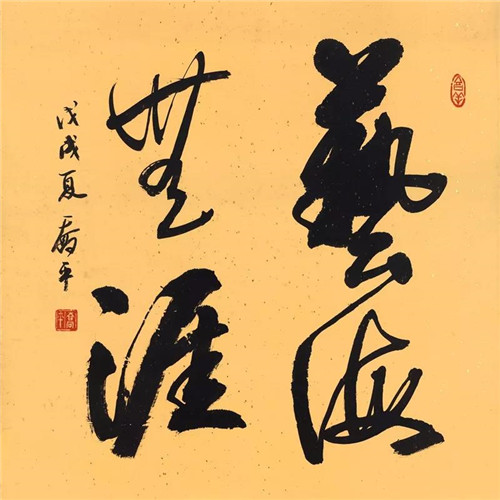 藝海
無涯
戊戌夏喬平